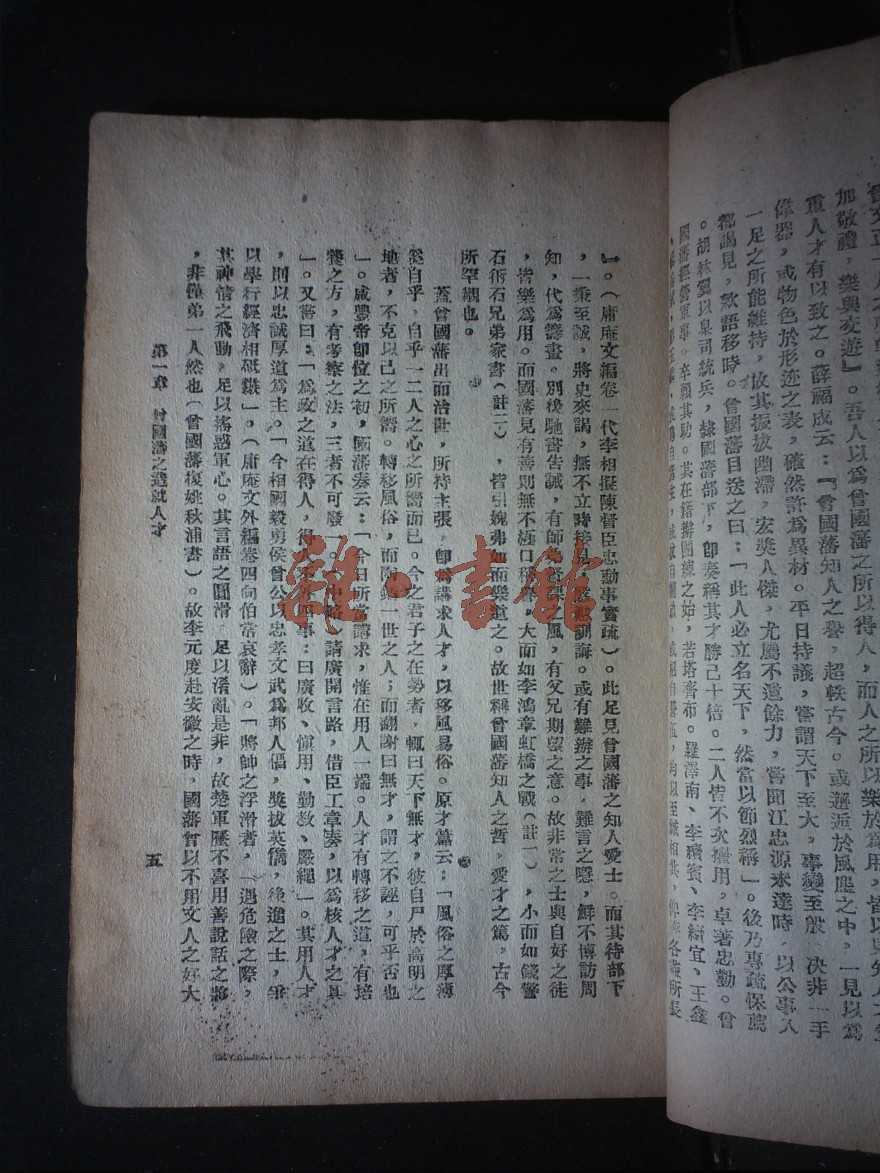 曾文正
加敬禮，樂與交遊』。吾人以爲曾國藩之所以得人，而人才之所以樂於爲用，皆以知人
重人才有以致之。薛福成云：『曾國藩知人之譽，超軼古今。或邂逅於風塵之中，一見以爲
偉器，或物色於形迹之表，確然許爲異材。平日持議，嘗謂天下至大，事變至殷，決非一手
一足之所能維持，故其振拔幽滯，宏奬人傑，尤屬不遺餘力，嘗聞江忠源來達時，以公事入
都謁見，欵語移時。曾國藩目送之曰：「此人必立名天下，然當以節烈稱」。後乃專疏保薦
。胡林翼以臬司統兵，隸國藩部下，卽奏稱其才勝己十倍。二人皆不次擢用，卓著忠勤。曾
國藩經營軍事，卒賴其助。其在籍辦團練之始，若塔齊布。羅澤南、李續賓、李續宜、王鑫
』。（庸庵文編卷一代李相擬陳督臣忠勳事實疏）。此足見曾國藩之知人愛士。而其待部下
，一秉至誠，將吏來謁，無不立時接見，殷懃訓誨。或有難辦之事，難言之隱，鮮不博訪周
知，代爲籌畫。別後馳書告誡，有師弟督課之風，有父兄期望之意。故非常之士與自好之徒
，皆樂爲用。而國藩見有善則無不極口稱奬，大而如李鴻章虹橋之戰（註一），小而如錢警
石術石兄弟家書（註二），皆引媿弗如而樂道之。故世稱曾國藩知人之哲，愛才之篤，古今
所罕觀也。
蓋曾國藩出而治世，所持主張，卽爲講求人才，以移風易俗。原才篇云：「風俗之厚薄
奚自乎，自乎一二人之心之所嚮而已。今之君子之在勢者，輒曰天下無才，彼自尸於高明之
地者，不克以己之所嚮。轉移風俗，而陶鑄一世之人；而翻謝曰無才，謂之不誣，可乎否也
」。咸豐帝卽位之初，國藩奏云：「今日所當講求，惟在用人一端。人才有轉移之道，有培
養之方，有考察之法，三者不可廢」。（中略）「請廣開言路，借臣工章奏，以爲核人才之具
」。又嘗曰：「爲政之道在得人，得人不外四事：曰廣收、愼用、勤敎、嚴繩」。其用人才
，則以忠誠厚道爲主。「今相國毅勇侯曾公以忠孝文武爲邦人倡，奬拔英儁，後進之士，爭
以學行經濟相砥鏃」。（庸庵文外編卷四向伯常哀辭）。「將帥之浮滑者，一遇危險之際，
其神情之飛動，足以搖惑軍心。其言語之圓滑 足以淆亂是非，故楚軍歷不喜用善說話之將
，非僅弟一人然也（曾國藩復姚秋浦書）。故李元度赴安徽之時，國藩曾以不用文人之好大
第一章 曾國藩之造就人才
五
雜·書館